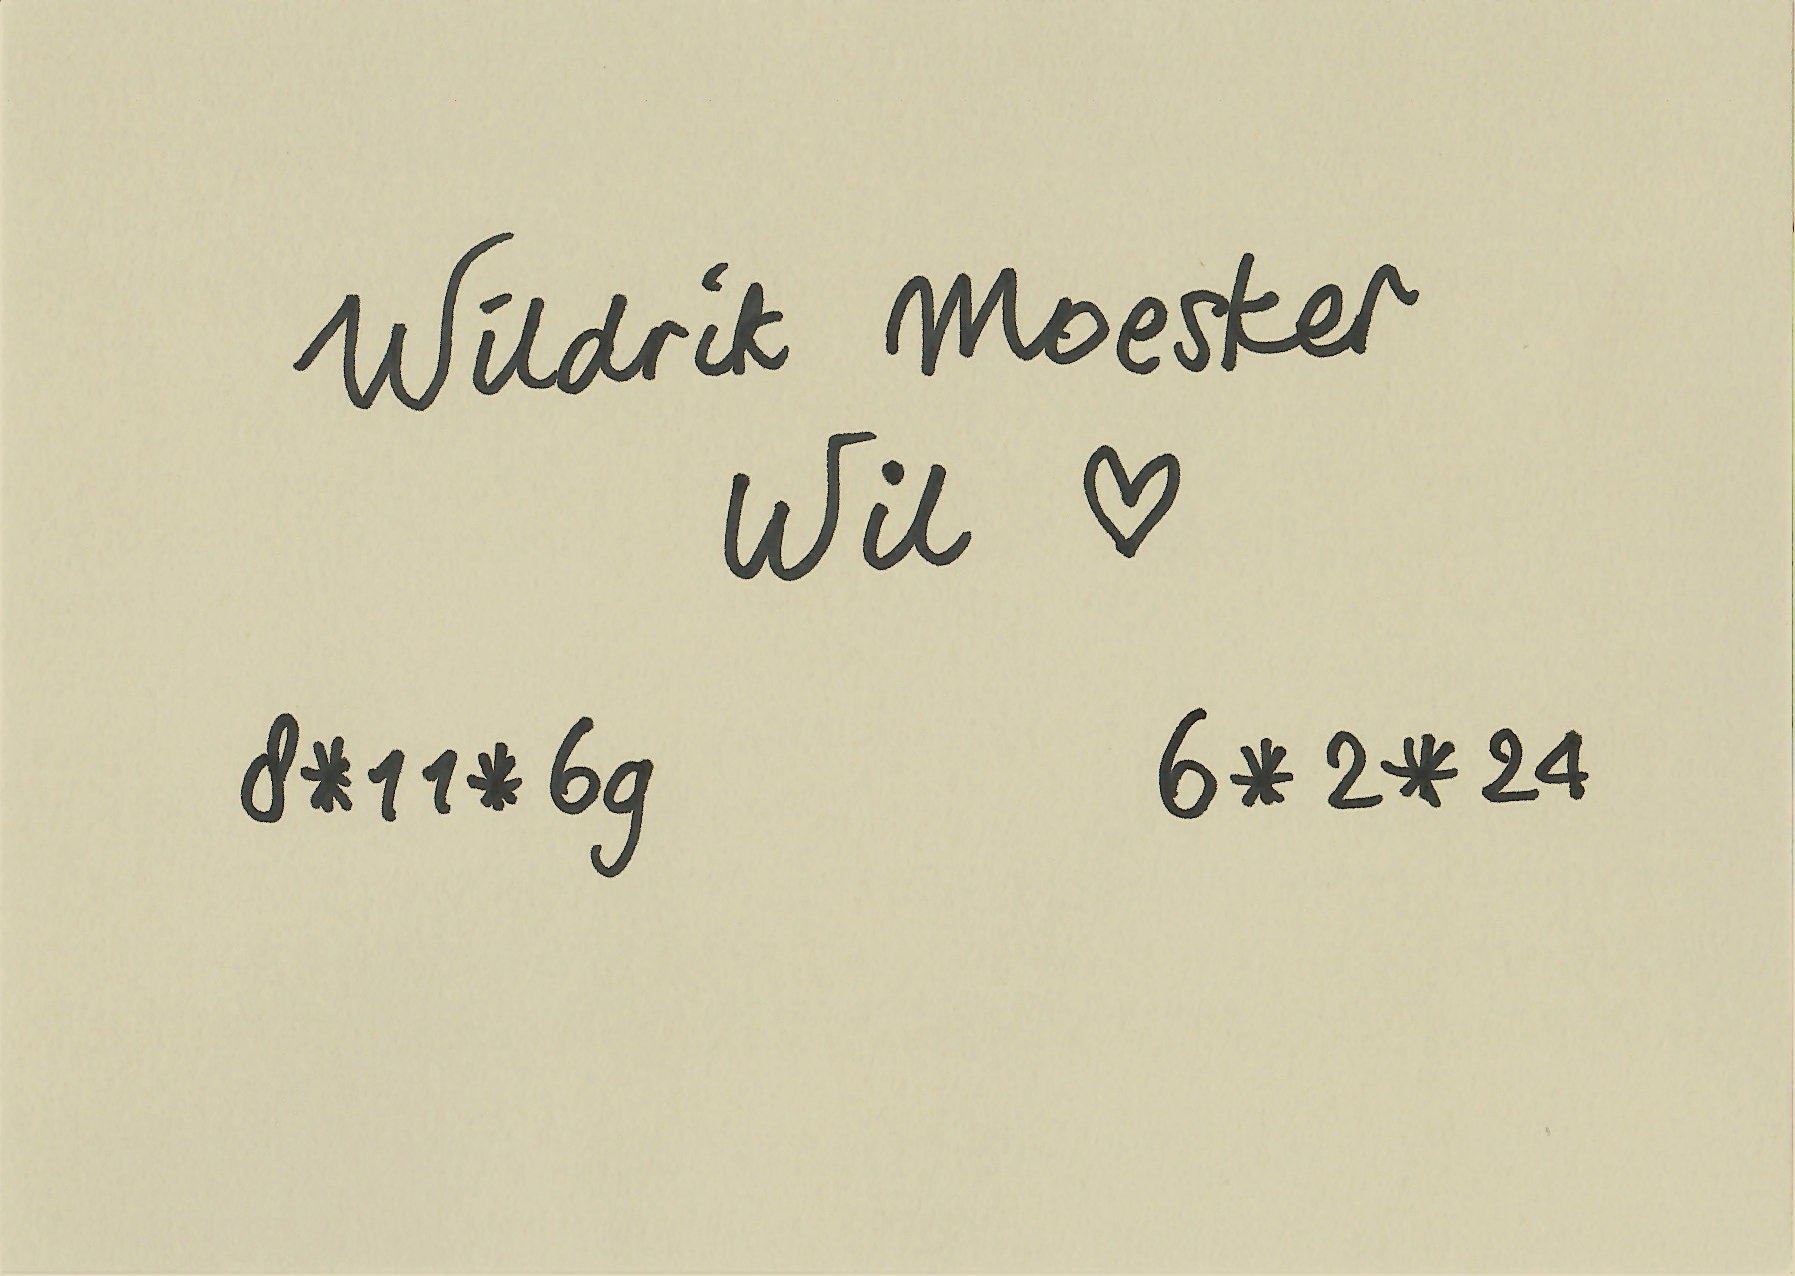 Wildrik Moesker
Wil ♡
8*11*69 6*2*24